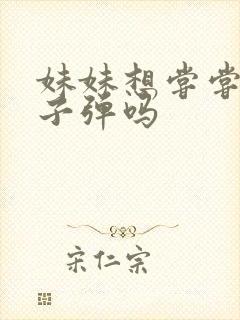 妹妹想尝尝
子弹吗
宋仁宗